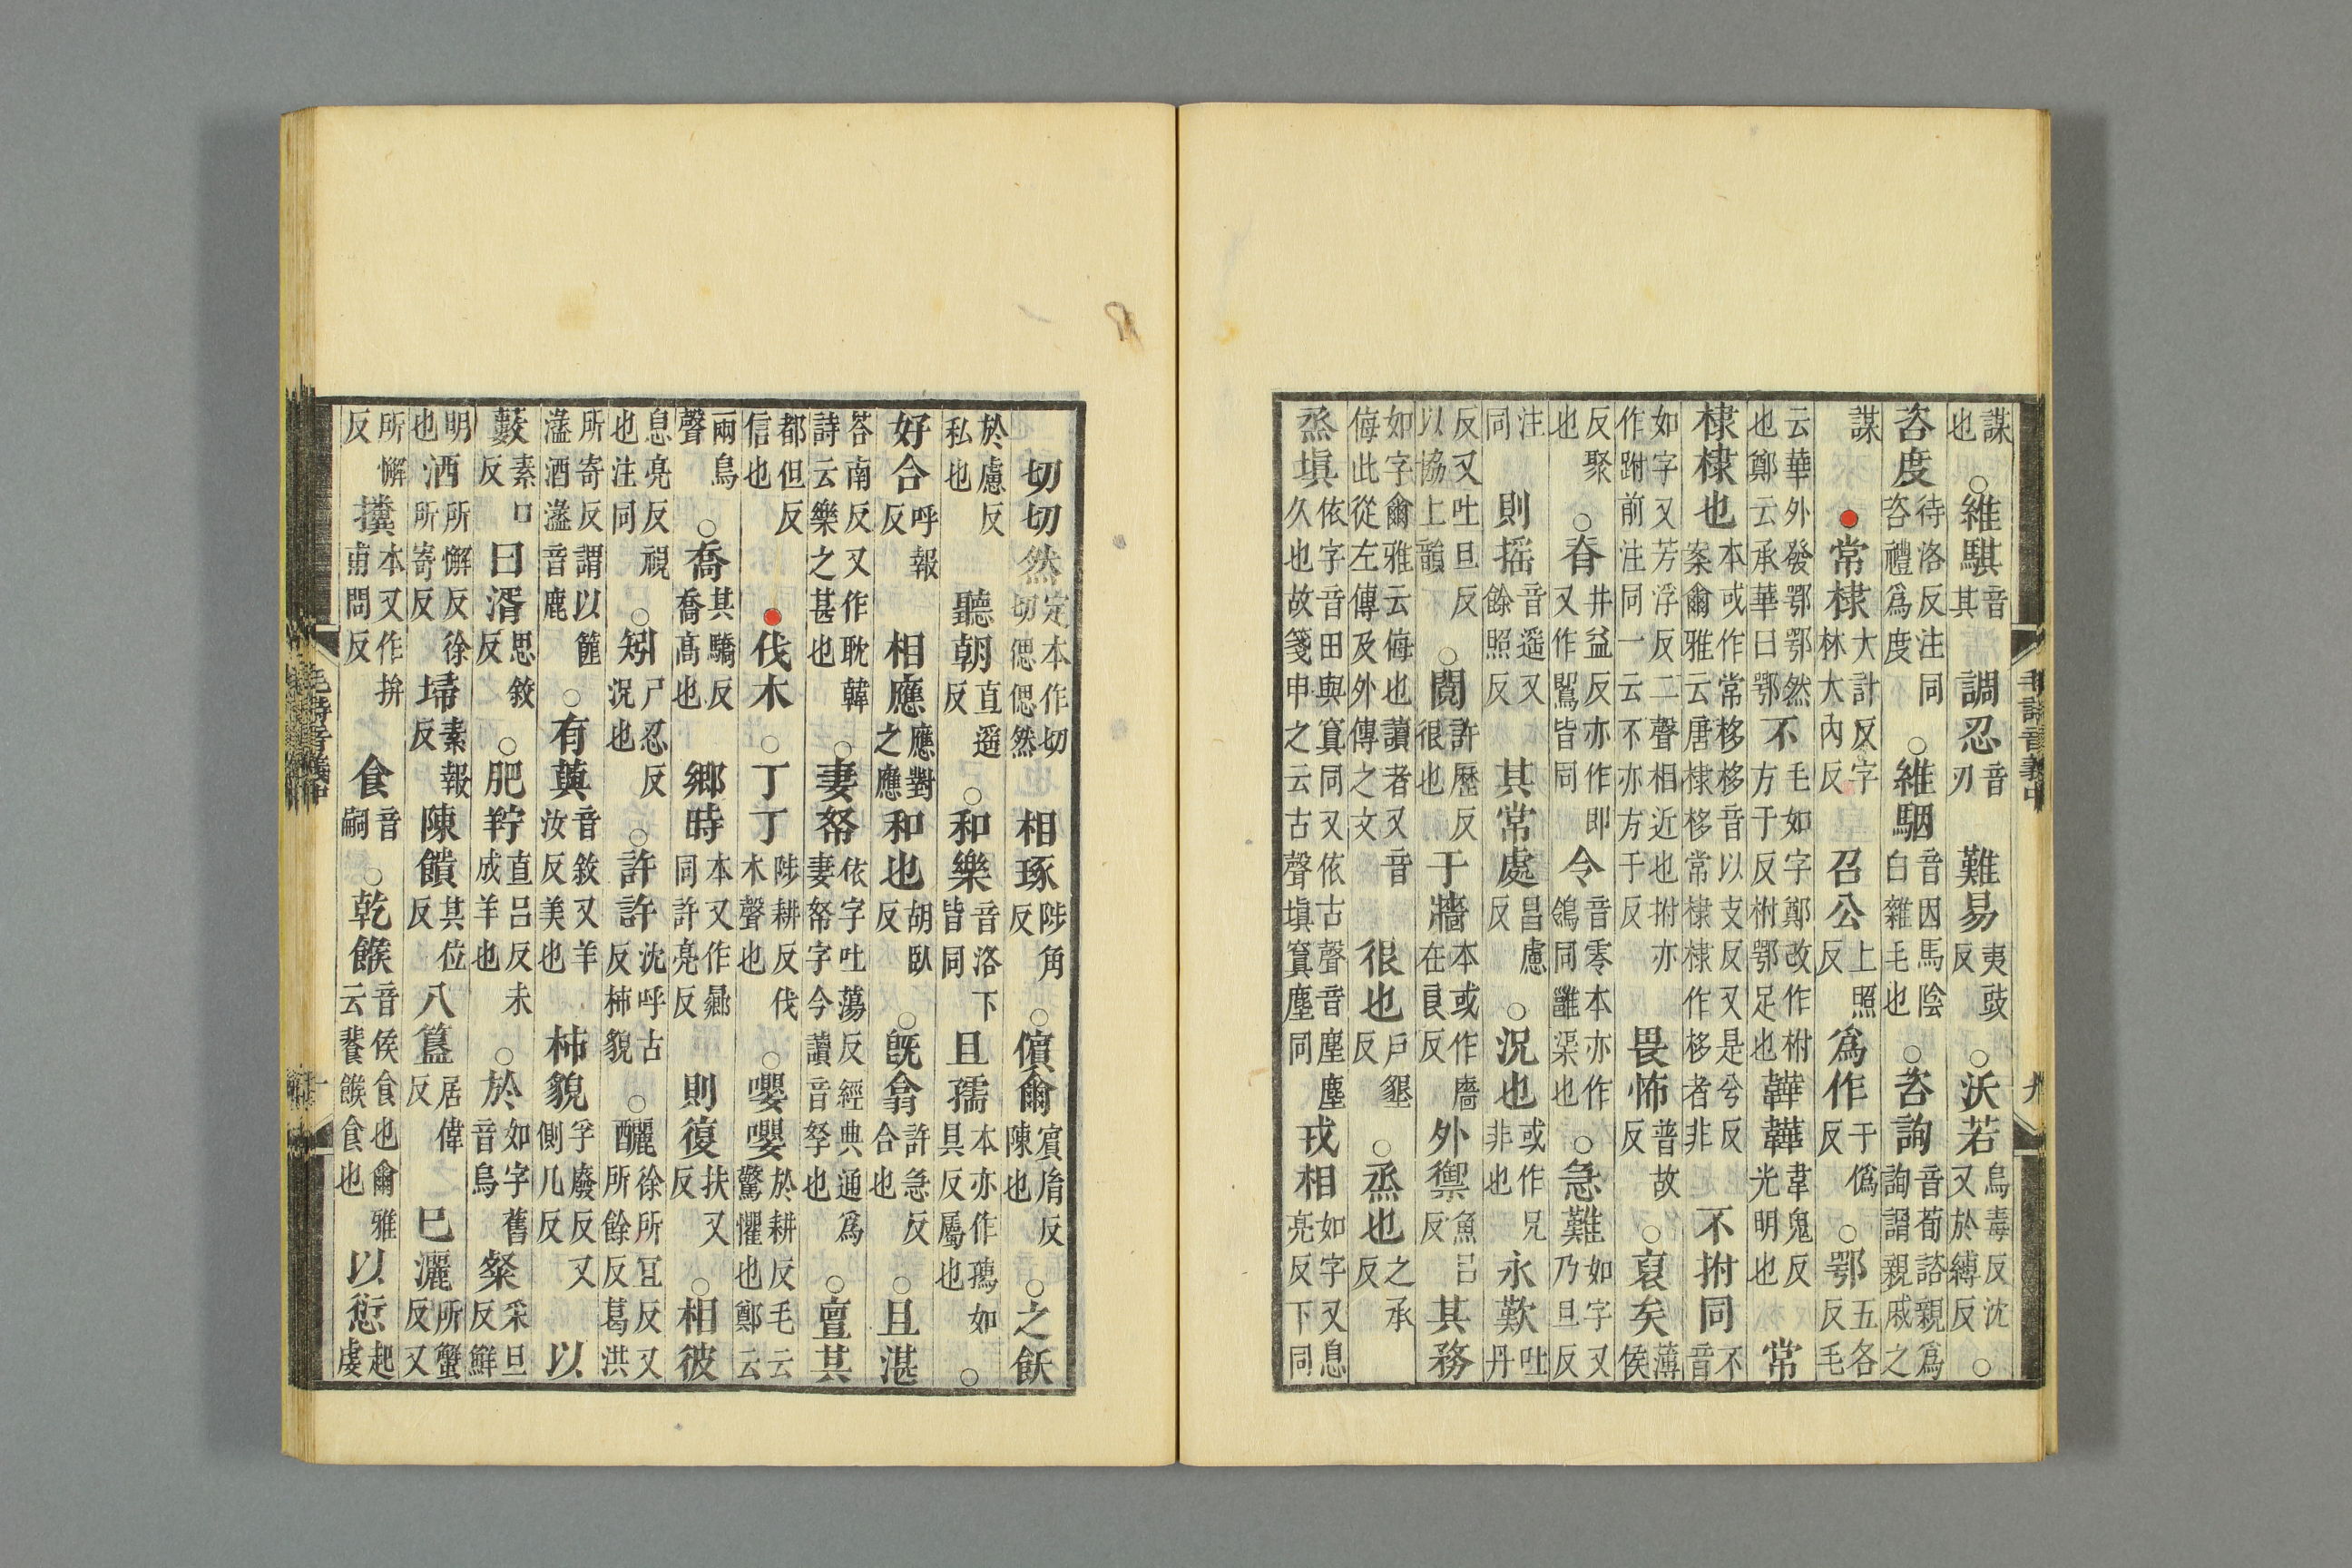 謀也○維騏音其調忍音刃難易夷豉反○沃若烏毒反沈又於縛反○
咨度待洛反注同咨禮爲度○維駰音因馬陰白雜毛也○咨詢音荀諮親爲詢謂親戚之
謀●常棣大計反字林大內反召公上照反爲作于僞反○鄂五各反毛
云華外發鄂鄂然也鄭云承華曰鄂不毛如字鄭改作柎方于反柎鄂足也韡韡韋鬼反光明也常
棣棣也本或作常栘栘音以支反又是兮反案爾雅云唐棣栘常棣棣作栘者非不拊同不音
如字又芳浮反二聲相近也拊亦作跗前注同一云不亦方于反畏怖普故反○裒矣薄侯
反聚也○脊井益反亦作即又作鴖皆同令音零本亦作鴒同雝渠也○急難如字又乃旦反
注同則搖音遥又餘照反其常處昌慮反○況也或作兄非也永歎吐丹
反又吐旦反以協上韻○鬩許歷反很也于牆本或作廧在良反外禦魚呂反其務
如字爾雅云侮也讀者又音侮此從左傳及外傳之文很也戶墾反○烝也之承反
烝塡依字音田與窴同又依古聲音塵久也故箋申之云古聲塡窴塵同戎相如字又息亮反下同
毛詩音義中 九
切切然定本作切切偲偲然相琢陟角反○儐爾賓胤反陳也○之飫
於慮反私也聽朝直遥反○和樂音洛下皆同且孺本亦作孺如具反屬也○
好合呼報反相應應對之應和也胡臥反○旣翕許急反合也○且湛
荅南反又作耽韓詩云樂之甚也○妻帑依字吐蕩反經典通爲妻帑字今讀音孥也○亶其
都但反信也●伐木○丁丁陟耕反伐木聲也○嚶嚶於耕反毛云驚懼也鄭云
兩鳥聲○喬其驕反喬高也鄉時本又作曏同許亮反則復扶又反○相彼
息亮反視也注同○矧尸忍反況也○許許沈呼古反柿貌○釃徐所宜反又所餘反葛洪
所寄反謂以筐漉酒漉音鹿○有藇音敘又羊汝反美也柿貌孚廢反又側几反以
藪素口反曰湑思敘反○肥羜直呂反未成羊也○於如字舊音烏粲采旦反鮮
明也洒所懈反徐所寄反埽素報反陳饋其位反八簋居偉反巳灑所蟹反又
所懈反本又作拚甫問反食音嗣○乾餱音侯食也爾雅云餥餱食也以愆起虔
毛詩音義中